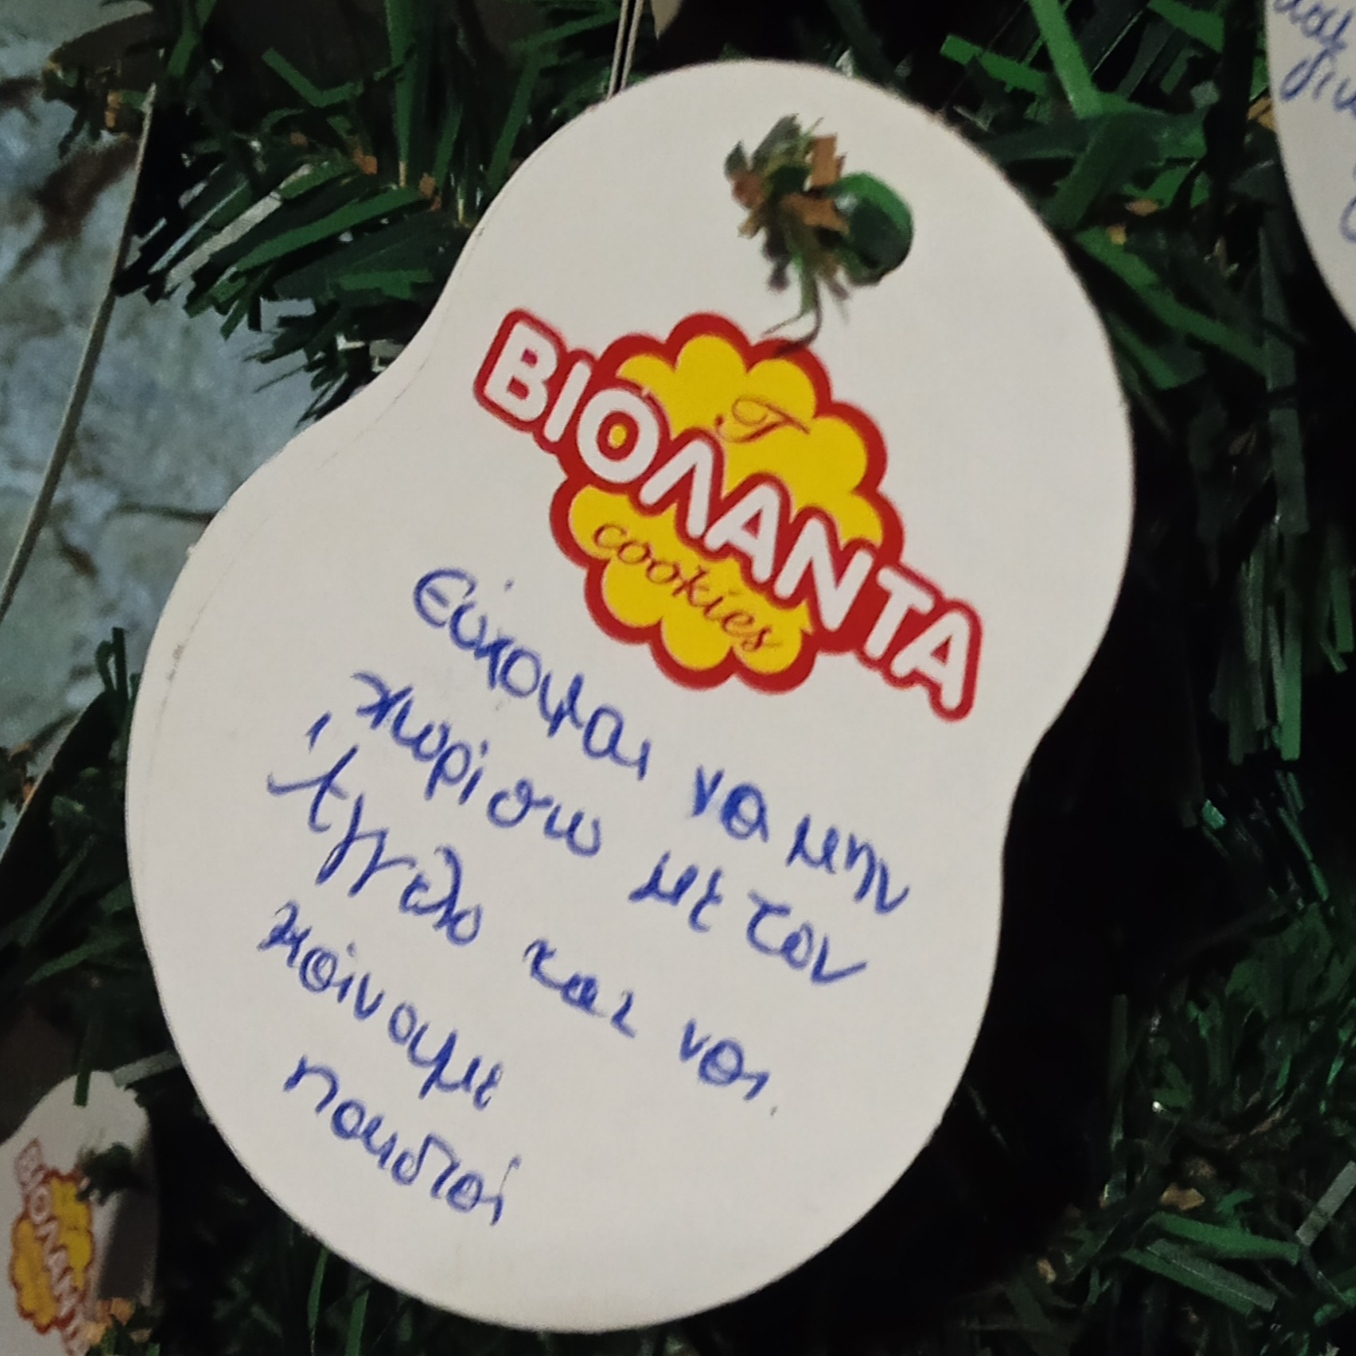 ΒΙΟΛΑΝΤΑ
cookies
Εύχομαι να μην
χωρίσω με τον
Άγγελο και να
κάνουμε
παιδιά
ΒΙΟΛΑΝΤΑ